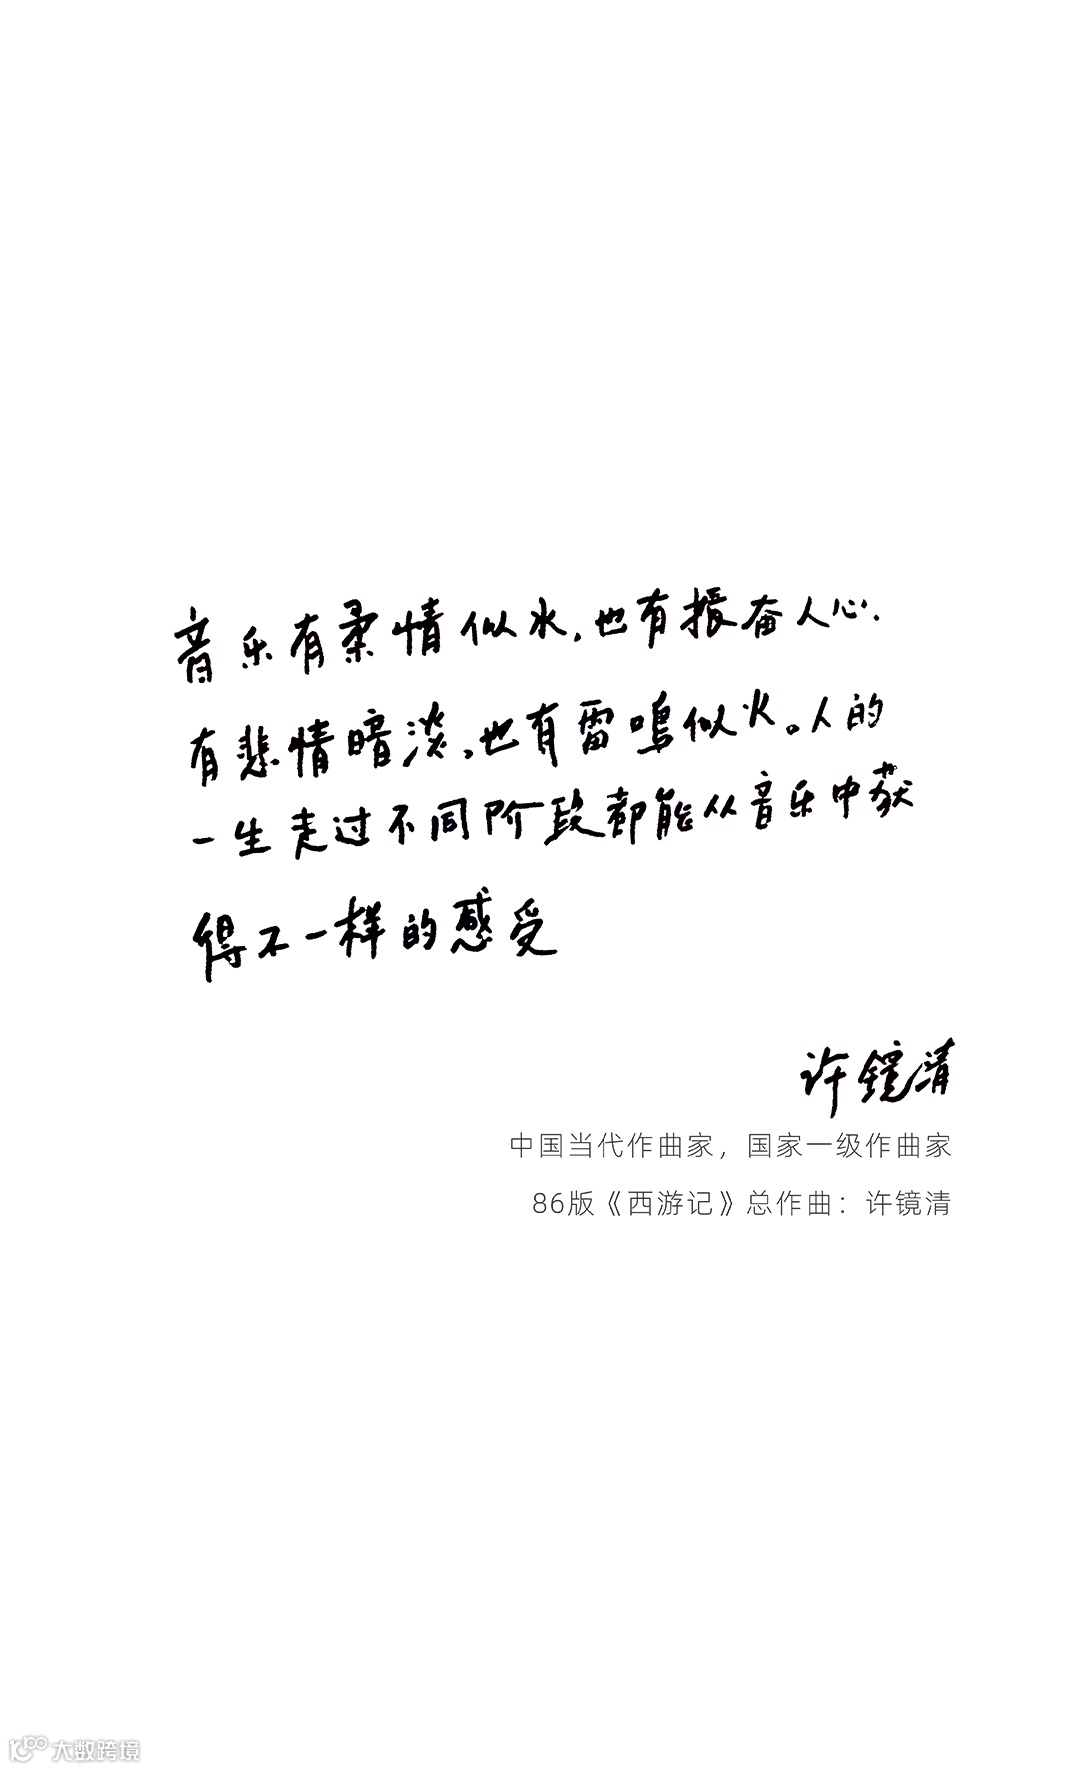 音乐有柔情似水,也有振奋人心.
有悲情暗淡,也有雷鸣似火。人的
一生走过不同阶段都能从音乐中获
得不一样的感受
许镜清
中国当代作曲家，国家一级作曲家
86版《西游记》总作曲：许镜清
大数跨境